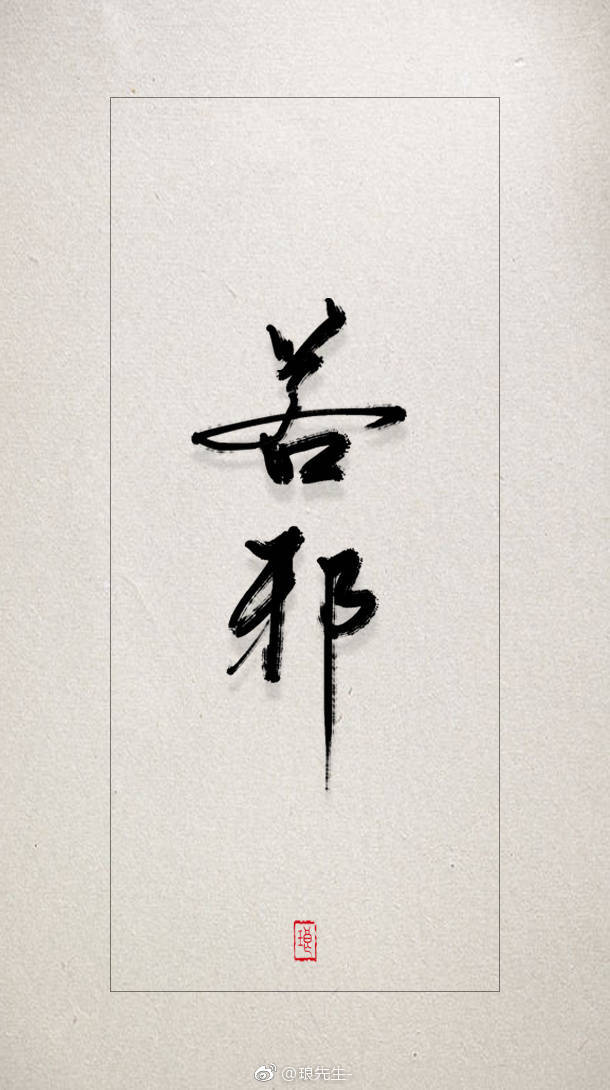 若邪
琅
@琅先生-